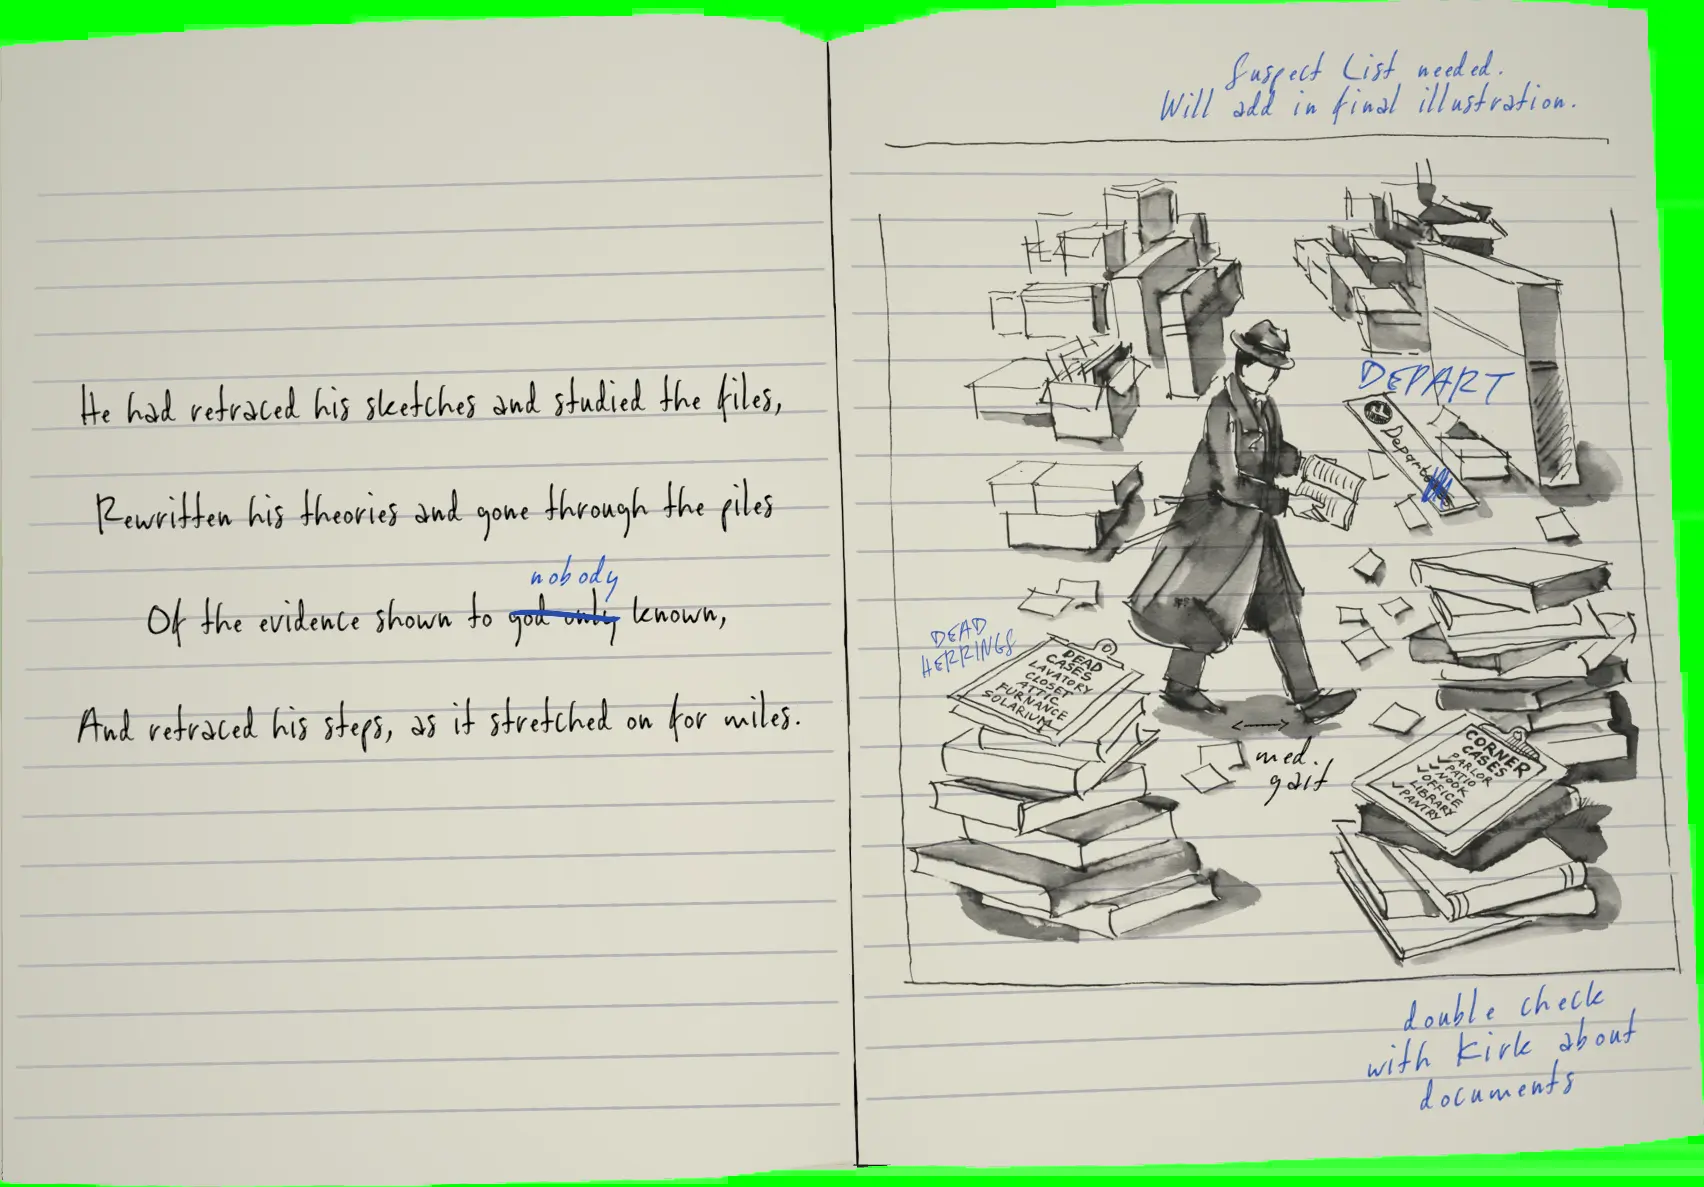 He had retraced his sketches and studied the files,
Rewritten his theories and gone through the piles
nobody
Of the evidence shown to god only known,
And retraced his steps, as it stretched on for miles.
Suspect List needed.
Will add in final illustration.
DEPART
DEAD
HERRINGS
DEAD
CASES
LAVATORY
CLOSET
ATTIC
FURNANCE
SOLARIUM
med.
gait
CORNER
CASES
PARLOR
PATIO
NOOK
OFFICE
LIBRARY
PANTRY
double check
with Kirk about
documents